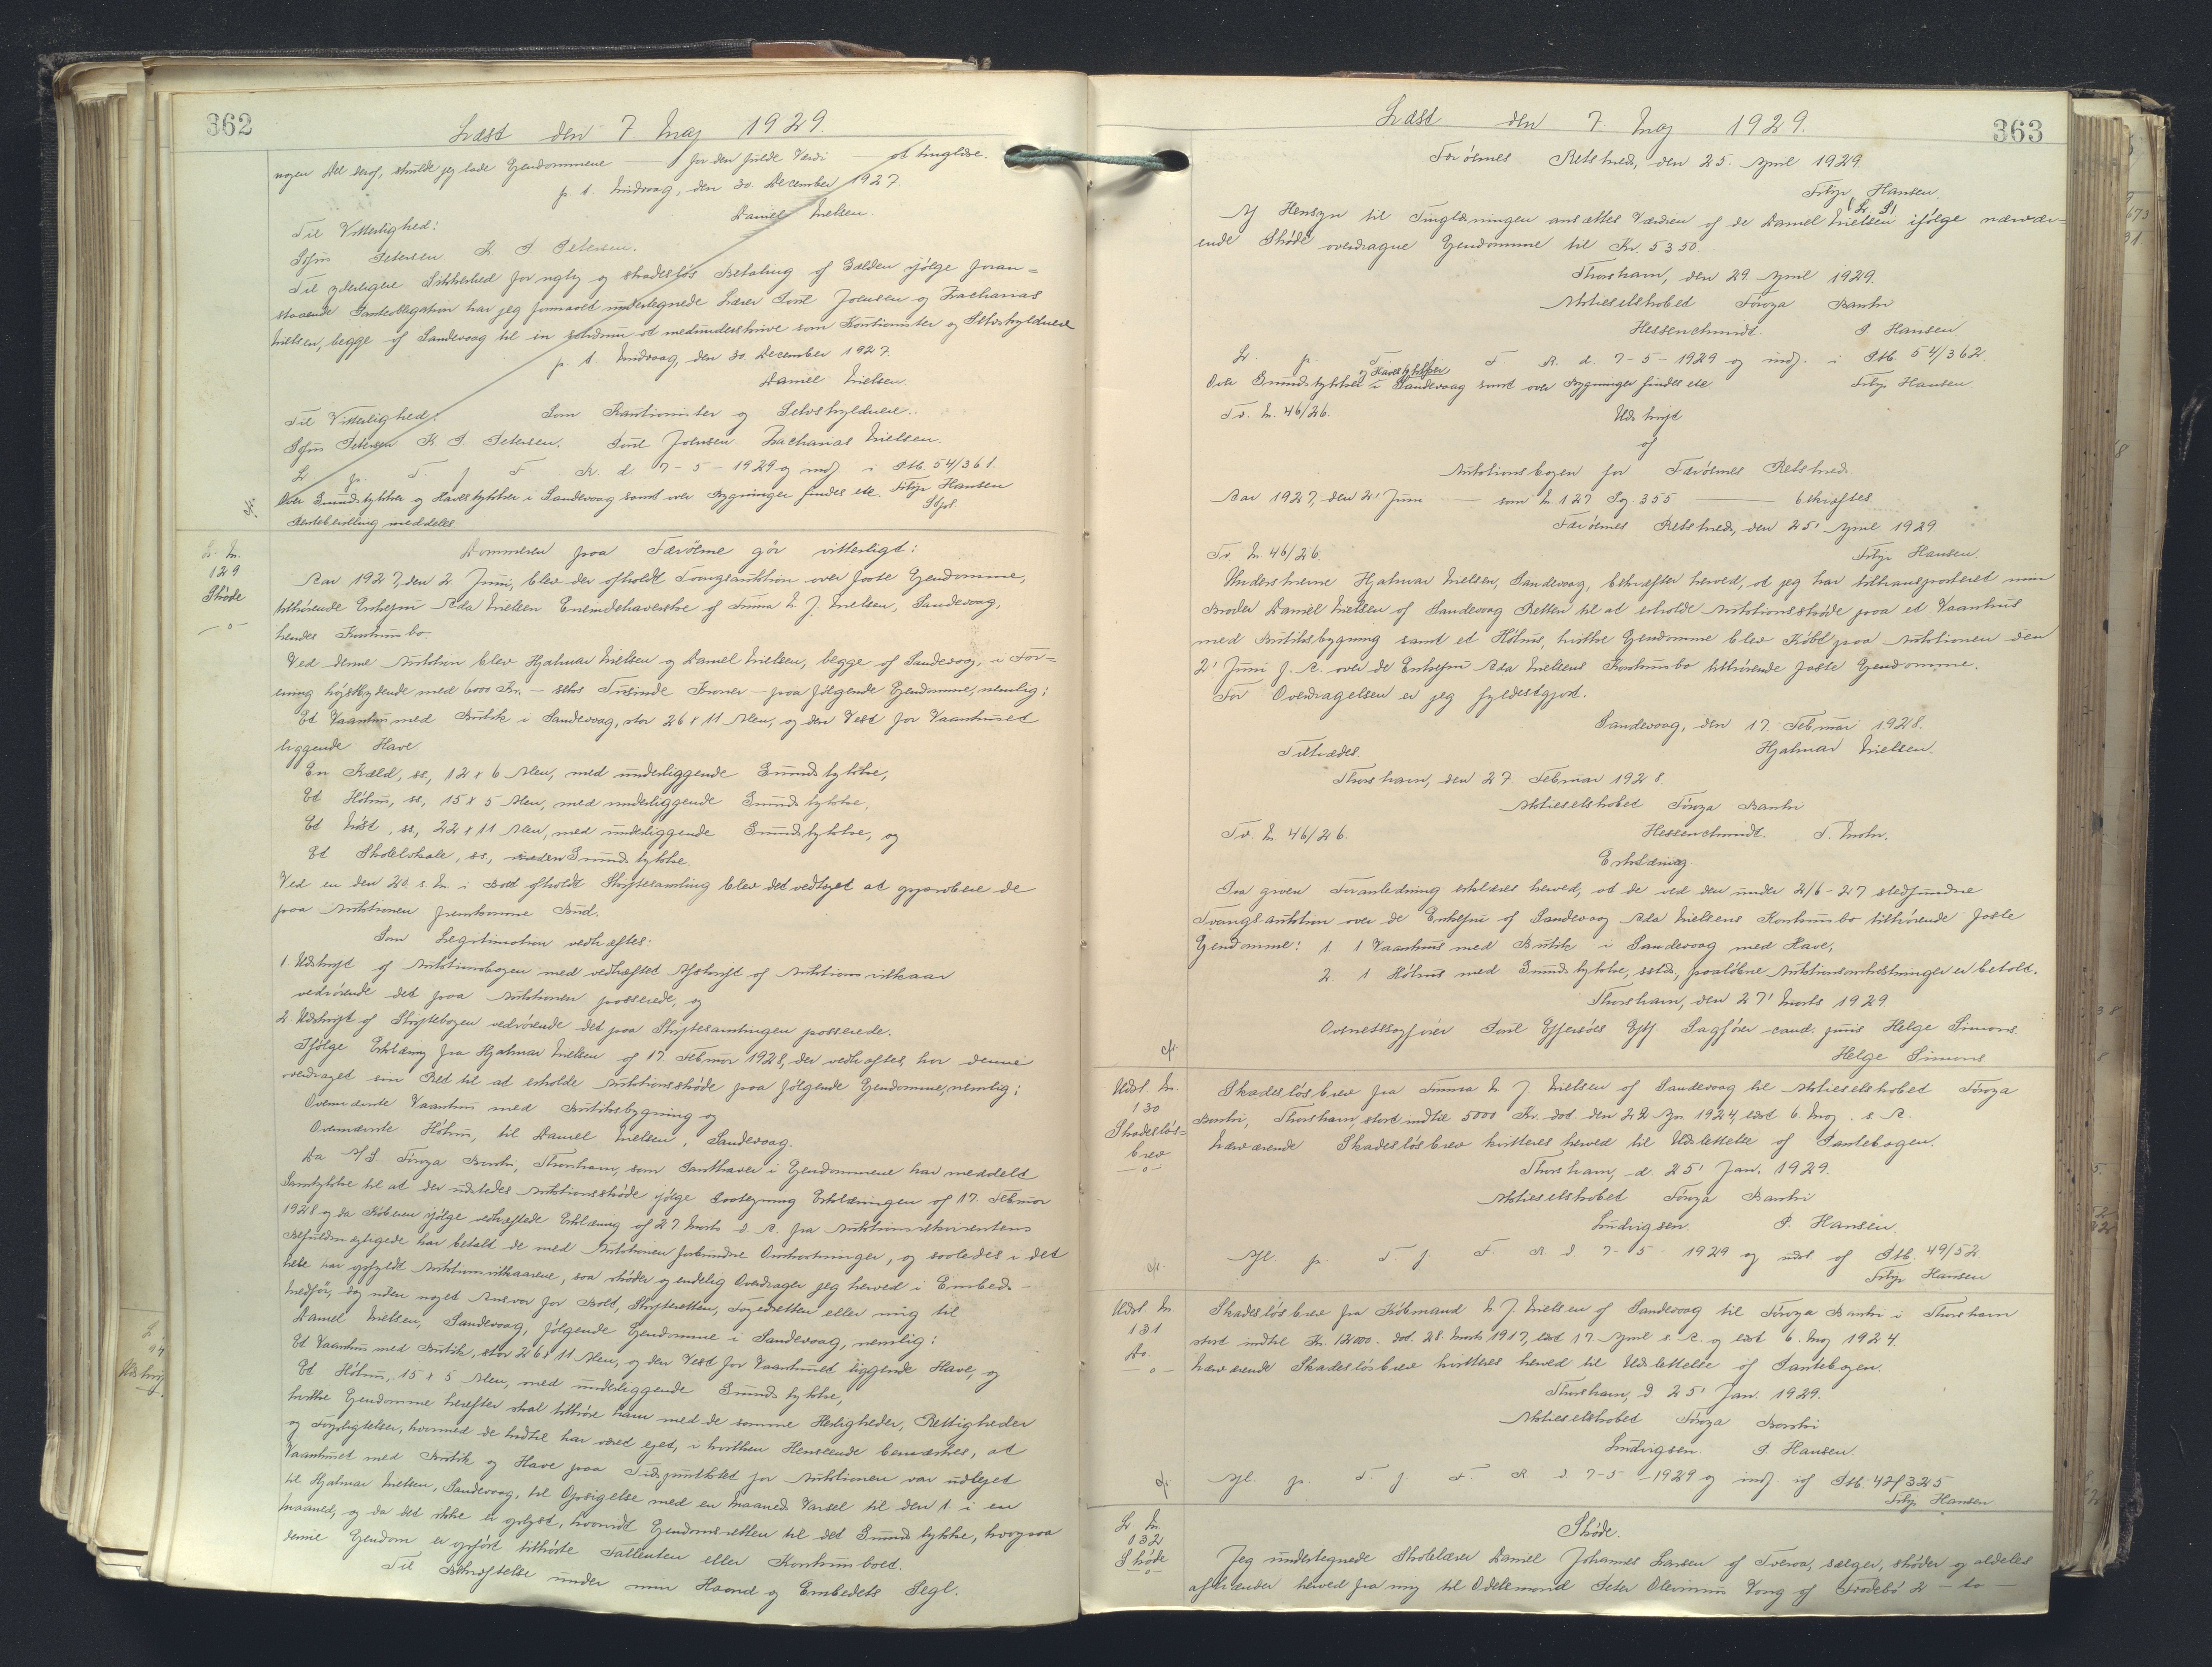 362
Læst den 7 Maj 1929.
nogen Del deraf, skulde jeg lade Ejendommene — for den fulde Værdi at tinglæse.
p. t. Midvaag, den 30. December 1927.
Daniel Nielsen.
Til Vitterlighed:
Sofus Petersen K. P. Petersen.
Til yderligere Sikkerhed for rigtig og skadesløs Betaling af Gælden ifølge foran-
staaende Panteobligation har jeg formaaet undertegnede Lærer Poul Joensen og Zacharias
Nielsen, begge af Sandevaag til in solidum at medunderskrive som Kautionister og Selvskyldnere
p. t. Midvaag, den 30. December 1927.
Daniel Nielsen.
Til Vitterlighed: Som Kautionister og Selvskyldnere.
Sofus Petersen K. P. Petersen. Poul Joensen Zacharias Nielsen.
L. p. T. f. F. R. d. 7-5-1929 og indf. i Ptb. 54/361.
Over Grundstykker og Havestykker i Sandevaag samt over Bygninger findes etc. Filip Hansen
Genbevilling meddeles
L. Nr.
129
Skøde
—o—
Dommeren paa Færöerne gör vitterligt:
Aar 1927, den 2 Juni, blev der afholdt Tvangsauktion over faste Ejendomme,
tilhørende Enkefru Ada Nielsen Eneindehaverske af Firma N. J. Nielsen, Sandevaag,
hendes Konkursbo.
Ved denne Auktion blev Hjalmar Nielsen og Daniel Nielsen, begge af Sandevaag, i For-
ening højstbydende med 6000 Kr. — seks Tusinde Kroner — paa følgende Ejendomme, nemlig:
Et Vaanhus med Butik i Sandevaag, stor 26 x 11 Alen, og den Vest for Vaanhuset
liggende Have.
En Kæld, ss, 12 x 6 Alen, med underliggende Grundstykke,
Et Höhus, ss, 15 x 5 Alen, med underliggende Grundstykke,
Et Nöst, ss, 22 x 11 Alen, med underliggende Grundstykke, og
Et Skolelokale, ss, uden Grundstykke.
Ved en den 20. s. M. i Boet afholdt Skiftesamling blev det vedtaget at approbere de
paa Auktionen fremkomne Bud.
Som Legitimation vedhæftes:
1. Udskrift af Auktionsbogen med vedhæftet Afskrift af Auktionsvilkaar
vedrörende det paa Auktionen passerede, og
2. Udskrift af Skiftebogen vedrörende det paa Skiftesamlingen passerede.
Ifølge Erklæring fra Hjalmar Nielsen af 17. Februar 1928, der vedhæftes, har denne
overdraget sin Ret til at erholde Auktionsskøde paa følgende Ejendomme, nemlig:
Ovennævnte Vaanhus med Butiksbygning og
Ovennævnte Höhus, til Daniel Nielsen, Sandevaag.
Da A/S. Föroya Banki, Thorshavn, som Panthaver i Ejendommene har meddelt
Samtykke til at der udstedes Auktionsskøde ifølge Paategning Erklæringen af 17. Februar
1928 og da Köberen ifølge vedhæftede Erklæring af 27 Marts d. A. fra Auktionsrekvirentens
Befuldmægtigede har betalt de med Auktionen forbundne Omkostninger, og saaledes i det
hele har opfyldt Auktionsvilkaarene, saa skøder og endelig Overdrager jeg herved i Embeds-
Medfør, dog uden noget Ansvar for Boet, Skifteretten, Fogedretten eller mig til
Daniel Nielsen, Sandevaag, følgende Ejendomme i Sandevaag, nemlig:
Et Vaanhus med Butik, stor 26 x 11 Alen, og den Vest for Vaanhuset liggende Have, og
Et Höhus, 15 x 5 Alen, med underliggende Grundstykke,
hvilke Ejendomme herefter skal tilhøre ham med de samme Herligheder, Rettigheder
og Forpligtelser, hvormed de hidtil har været ejet, i hvilken Henseende bemærkes, at
Vaanhuset med Butik og Have paa Tidspunktet for Auktionen var udlejet
til Hjalmar Nielsen, Sandevaag, til Opsigelse med en Maaneds Varsel til den 1. i en
Maaned, og da det ikke er oplyst, hvorvidt Ejendomsretten til det Grundstykke, hvorpaa
denne Ejendom er opført tilhørte Fallenten eller Konkursboet.
Til Bekræftelse under min Haand og Embedets Segl.
363
Læst den 7. Maj 1929.
Færöernes Retskreds, den 25. April 1929.
Filip Hansen.
(L. S.)
Af Hensyn til Tinglæsningen ansættes Værdien af de Daniel Nielsen ifølge nærvær-
ende Skøde overdragne Ejendomme til Kr. 5350.
Thorshavn, den 29. April 1929.
Aktieselskabet Föroya Banki
Hessenschmidt. P. Hansen
L. p. T. F. R. d. 7-5-1929 og indf. i Ptb. 54/362.
Over Grundstykker og Havestykker i Sandevaag samt over Bygninger findes etc Filip Hansen
Tv. Nr. 46/26. Udskrift
af
Auktionsbogen for Færöernes Retskreds
Aar 1927, den 2' Juni — som Nr. 127 Pg. 355 — bekræftes.
Færöernes Retskreds, den 25' April 1929.
Tv. Nr. 46/26. Filip Hansen.
Underskrevne Hjalmar Nielsen, Sandevaag, bekræfter herved, at jeg har tiltransporteret min
Broder Daniel Nielsen af Sandevaag Retten til at erholde Auktionsskøde paa et Vaanhus
med Butiksbygning samt et Höhus, hvilke Ejendomme blev Købt paa Auktionen den
2' Juni f. A. over de Enkefru Ada Nielsens Konkursbo tilhørende faste Ejendomme.
For Overdragelsen er jeg fyldestgjort.
Sandevaag, den 17. Februar 1928.
Tiltrædes. Hjalmar Nielsen.
Thorshavn, den 27. Februar 1928.
Aktieselskabet Föroya Banki
Tv. Nr. 46/26. Hessenschmidt.
Erklæring.
Paa given Foranledning erklæres herved, at de ved den under 2/6-27 stedfundne
Tvangsauktion over de Enkefru af Sandevaag Ada Nielsens Konkursbo tilhørende faste
Ejendomme: 1. 1 Vaanhus med Butik i Sandevaag med Have,
2. 1 Höhus med Grundstykke, sstds, paaløbne Auktionsomkostninger er betalt.
Thorshavn, den 27' Marts 1929.
Overretssagfører Poul Effersöes Eftf. Sagfører cand. juris Helge Simons
Helge Simons
Udsl. Nr.
130
Skadesløs-
brev
—o—
Skadesløsbrev fra Firma N. J. Nielsen af Sandevaag til Aktieselskabet Föroya
Banki, Thorshavn, stort indtil 5000 Kr. dat. den 22 Apr. 1924, læst 6. Maj s. A.
Nærværende Skadesløsbrev kvitteres herved til Udslettelse af Pantebogen.
Thorshavn, d. 25' Jan. 1929.
Aktieselskabet Föroya Banki
Ludvigsen. P. Hansen.
Afl. p. T. f. F. R. d. 7-5-1929 og udsl. af Ptb. 49/52
Filip Hansen
Udsl. Nr.
131
Do.
—o—
Skadesløsbrev fra Købmand N. J. Nielsen af Sandevaag til Föroya Banki i Thorshavn
stort indtil Kr. 12000. dat. 28. Marts 1917, læst 17. April s. A. og læst 6. Maj 1924.
Nærværende Skadesløsbrev kvitteres herved til Udslettelse af Pantebogen.
Thorshavn, d. 25' Jan. 1929.
Aktieselskabet Föroya Banki
Ludvigsen. P. Hansen.
Afl. p. T. f. F. R. d. 7-5-1929 og Ptb. 42/325
Filip Hansen
L. Nr.
132
Skøde
—o—
Skøde.
Jeg undertegnede Skolelærer Daniel Johannes Larsen af Tveraa, sælger, skøder og aldeles
afhænder herved fra mig til Odelsmand Peter Olevinus Vang af Frodebö 2 — to —